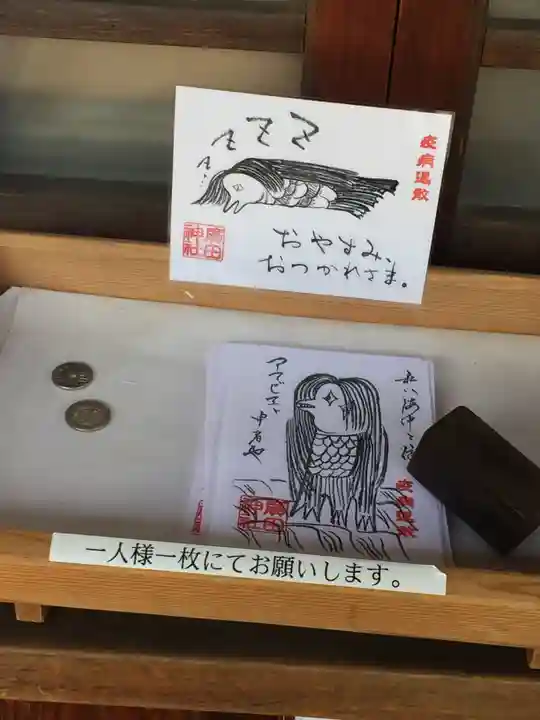 疫病退散
おやすみ、
おつかれさま。
廣田
神社
私ハ海中ニ住
アマビヱト
申者也
疫病退散
廣田
神社
一人様一枚にてお願いします。